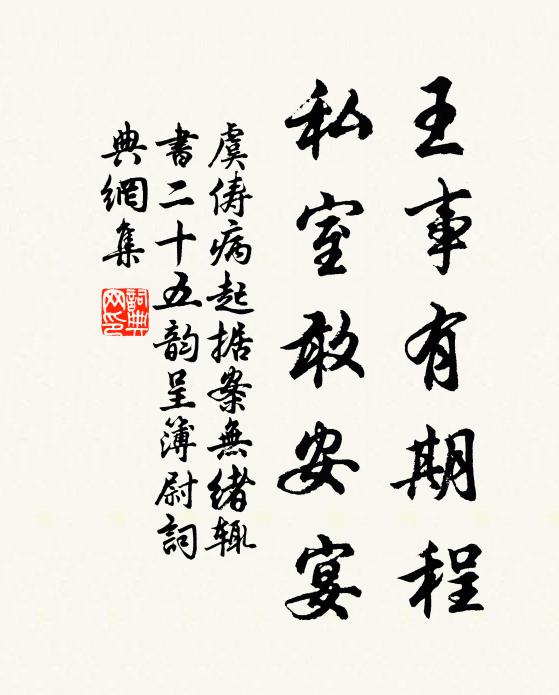 王事有期程
私室敢安宴
虞俦病起据案無緒辄
書二十五韵呈簿尉詞
典網集
詞典網印